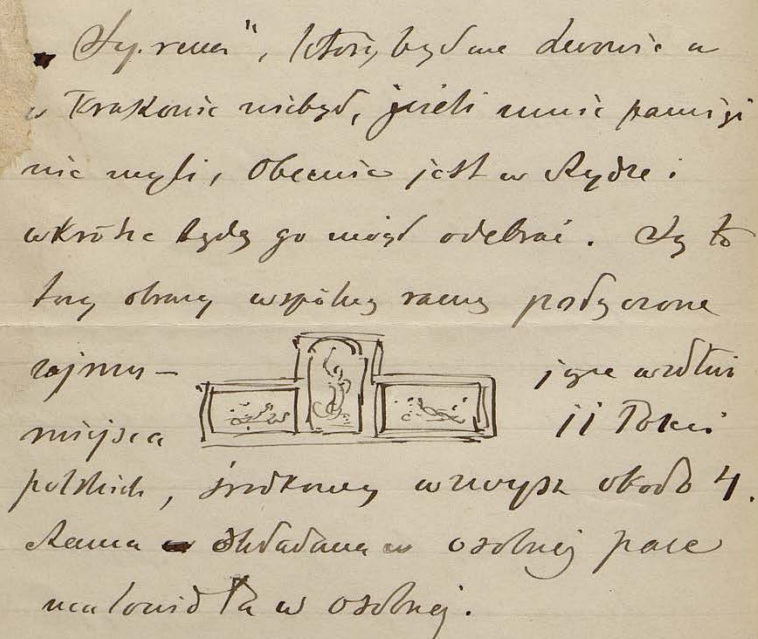 „Syrena", który był we Lwowie a
w Krakowie niebył, jeżeli mnie pamięć
nie myli, Obecnie jest w Rydze i
wkrótce będę go mógł odebrać. Są to
trzy obrazy wspólną ramą połączone
zajmu- jące wzdłuż
miejsca 11 łokci
polskich, środkowy wzwysz około 4.
Rama składana w osobnej pace
malowidła w osobnej.